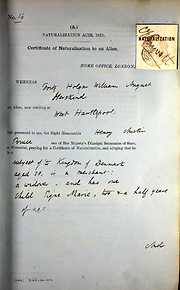 No. 16
(A.)
NATURALIZATION ACT, 1870.
Certificate of Naturalization to an Alien.
HOME OFFICE, LONDON.
NATURALIZATION
WHEREAS
Holger William August
an Alien, now residing at
West Hartlepool
has presented to me, the Right Honourable Henry Austin
Bruce one of Her Majesty's Principal Secretaries of State,
a Memorial, praying for a Certificate of Naturalization, and alleging that he
is a
subject of the Kingdom of Denmark
aged 30, is a merchant:
a widower, and has one
child Signe Marie, two & a half years
of age.
And